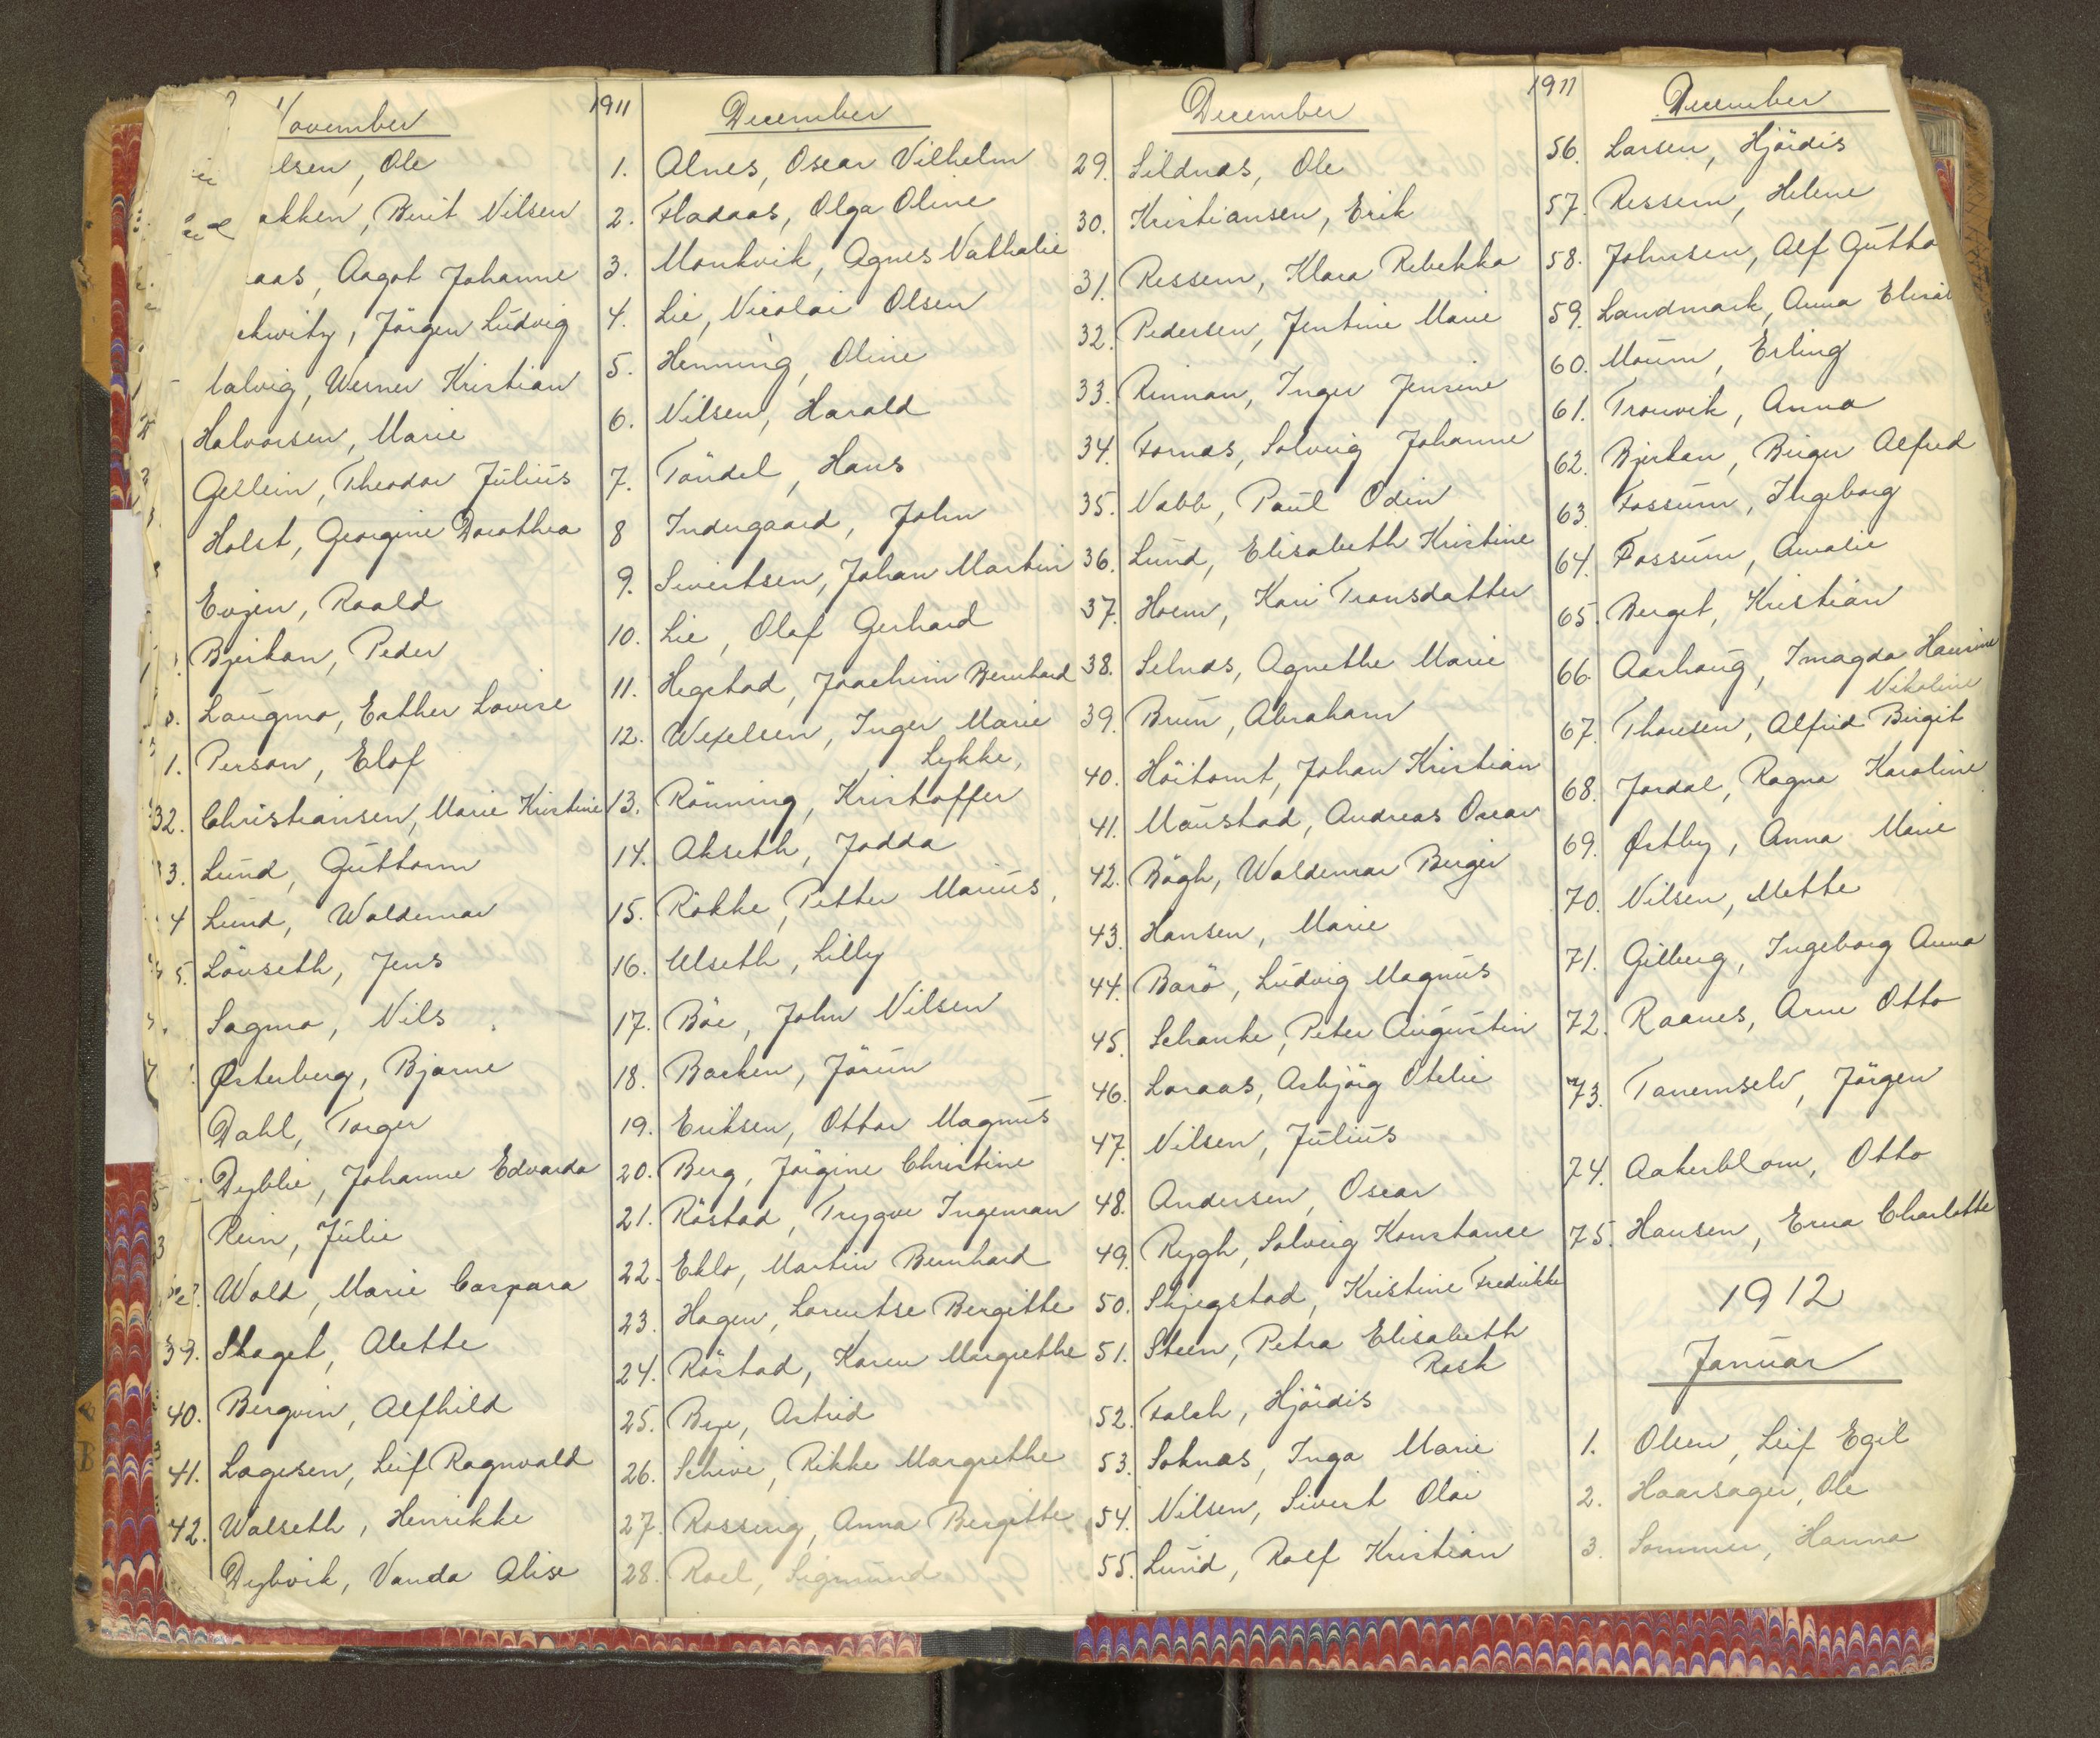 November
lsen, Ole
akken, Berit Nilsen
aas, Aagot Johanne
ckwitz, Jörgen Ludvig
talvig, Werner Kristian
Halvorsen, Marie
Gellein, Theodor Julius
Holst, Georgine Dorothea
Evjen, Roald
Bjerkan, Peder
Laugmo, Esther Lovise
1. Person, Elof
32. Christiansen, Marie Kristine
3. Lund, Guttorm
4 Lund, Waldemar
5. Lönseth, Jens
Sagmo, Nils
Østerberg, Bjarne
Dahl, Torger
Dyblie, Johanne Edvarda
Rein, Julie
Wold, Marie Caspara
39. Skaget, Alette
40. Bergvin, Alfhild
41. Lagesen, Leif Ragnvald
42. Walseth, Henrikke
Dybvik, Vanda Alise
1911
December
1. Alnes, Oscar Vilhelm
2. Fladaas, Olga Oline
3. Monkvik, Agnes Nathalie
4. Lie, Nicolai Olsen
5. Henning, Oline
6. Nilsen, Harald
7. Töndel, Hans
8 Indergaard, John
9. Sivertsen, Johan Martin
10. Lie, Olaf Gerhard
11. Hegstad, Joachim Bernhard
12. Wexelsen, Inger Marie
Lykke,
13. Rönning, Kristoffer
14. Akseth, Jodda
15. Rökke, Petter Marius,
16. Ulseth, Lilly
17. Böe, John Nilsen
18. Backen, Jörun
19. Eriksen, Ottar Magnus
20. Berg, Jörgine Christine
21. Röstad, Trygve Ingeman
22. Eklo, Martin Bernhard
23. Hagen, Lorentse Bergitte
24. Röstad, Karen Margrethe
25. Bye, Astrid
26. Schive, Rikke Margrethe
27. Rossing, Anna Bergitte
28. Roel, Sigmund
December
29. Sildnæs, Ole
30. Kristiansen, Erik
31. Ressem, Klara Rebekka
32. Pedersen, Jentine Marie
33. Rinnan, Inger Jensine
34. Fornæs, Solveig Johanne
35. Nabb, Paul Odin
36. Lund, Elisabeth Kristine
37. Hoem, Kari Tronsdatter
38. Selnæs, Agnethe Marie
39. Brun, Abraham
40. Höitomt, Johan Kristian
41. Maustad, Andreas Oscar
42. Bögh, Waldemar Berger
43. Hansen, Marie
44. Barö, Ludvig Magnus
45. Schanke, Peter Augustin
46. Loraas, Asbjörg Otelie
47. Nilsen, Julius
48. Andersen, Oscar
49. Rygh, Solveig Konstanse
50. Skjegstad, Kristine Fredrikke
51. Steen, Petra Elisabeth
Rosk
52. Falch, Hjördis
53. Soknæs, Inga Marie
54. Nilsen, Sivert Olai
55. Lund, Rolf Kristian
1911
December
56. Larsen, Hjördis
57. Ressem, Helene
58. Johnsen, Alf Gutto
59. Landmark, Anna Elisab
60. Moum, Erling
61. Tronvik, Anna
62. Bjerkan, Birger Alfred
63. Fossum, Ingeborg
64. Fossum, Amalie
65. Berget, Kristian
66. Aarhaug, Imagda Hansine
Nikoline
67. Thoresen, Alfrid Birgit
68. Jordal, Ragna Karoline
69. Østby, Anna Marie
70. Nilsen, Mette
71. Gilberg, Ingeborg Anna
72. Raanes, Arne Otto
73. Tanemselv, Jörgen
74. Aakerblom, Otto
75. Hansen, Erna Charlotte
1912
Januar
1. Olsen, Leif Egil
2. Haarsager, Ole
3. Sommer, Hanna